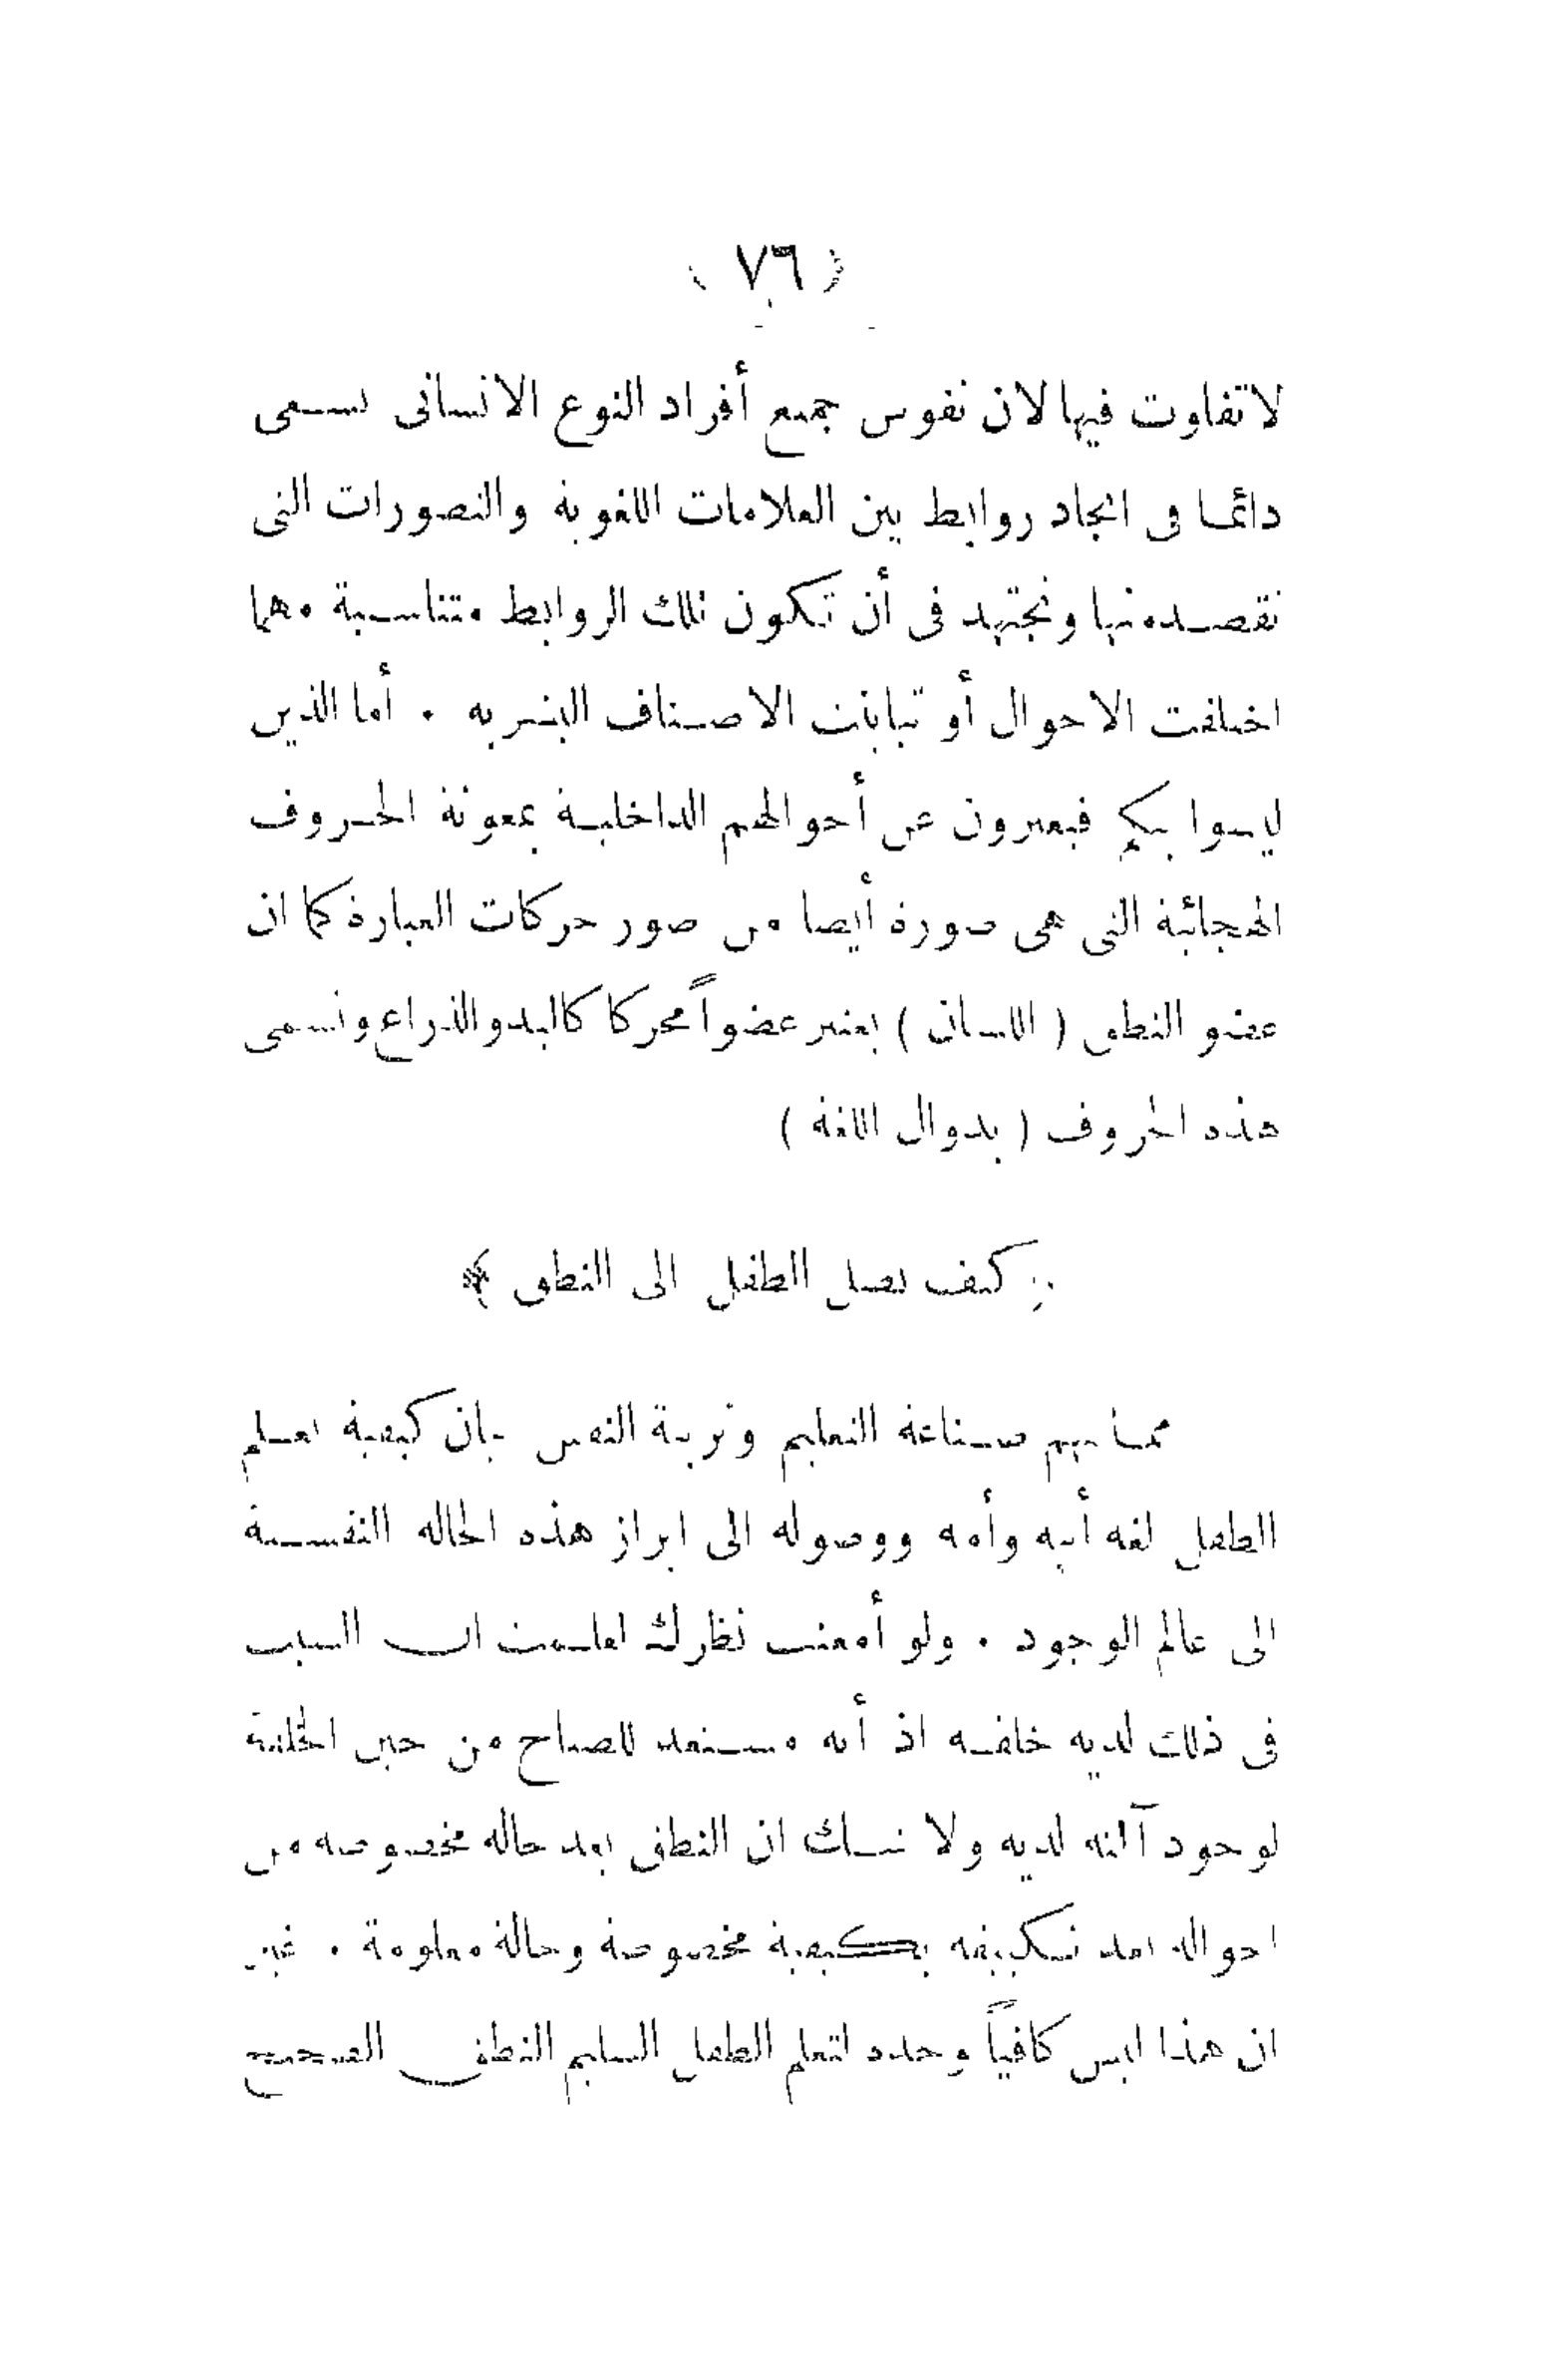 ( ٧٦ )
لا تفاوت فيها لان نفوس جميع أفراد النوع الانسانى تسعى
دائما فى ايجاد روابط بين العلامات اللغوية والتصورات التى
تقصد منها وتجتهد فى أن تكون تلك الروابط متناسبة مهما
اختلفت الاحوال أو تباينت الاصناف البشرية . أما الذين
ليسوا ببكم فيعبرون عن أحوالهم الداخلية بمعونة الحروف
الهجائية التى هى صورة أيضا من صور حركات العبارة كما ان
عضو النطق ( اللسان ) يعتبر عضواً محركا كاليد والذراع وتسمى
هذه الحروف ( بدوال اللغة )
﴿ كيف يصل الطفل الى النطق ﴾
مما يهم صناعة التعليم وتربية النفس بيان كيفية تعلم
الطفل لغة أبيه وأمه ووصوله الى ابراز هذه الحالة النفسية
الى عالم الوجود . ولو أمعنت نظرك لعلمت ان السبب
فى ذلك لديه خلقة اذ أنه مستعد للصياح من حين الخلقة
لوجود آلته لديه ولا شك ان النطق يعد حالة مخصوصة من
احواله بعد تكييفه بكيفية مخصوصة وحالة معلومة . غير
ان هذا ليس كافياً وحده لتعلم الطفل السليم النطق الصحيح